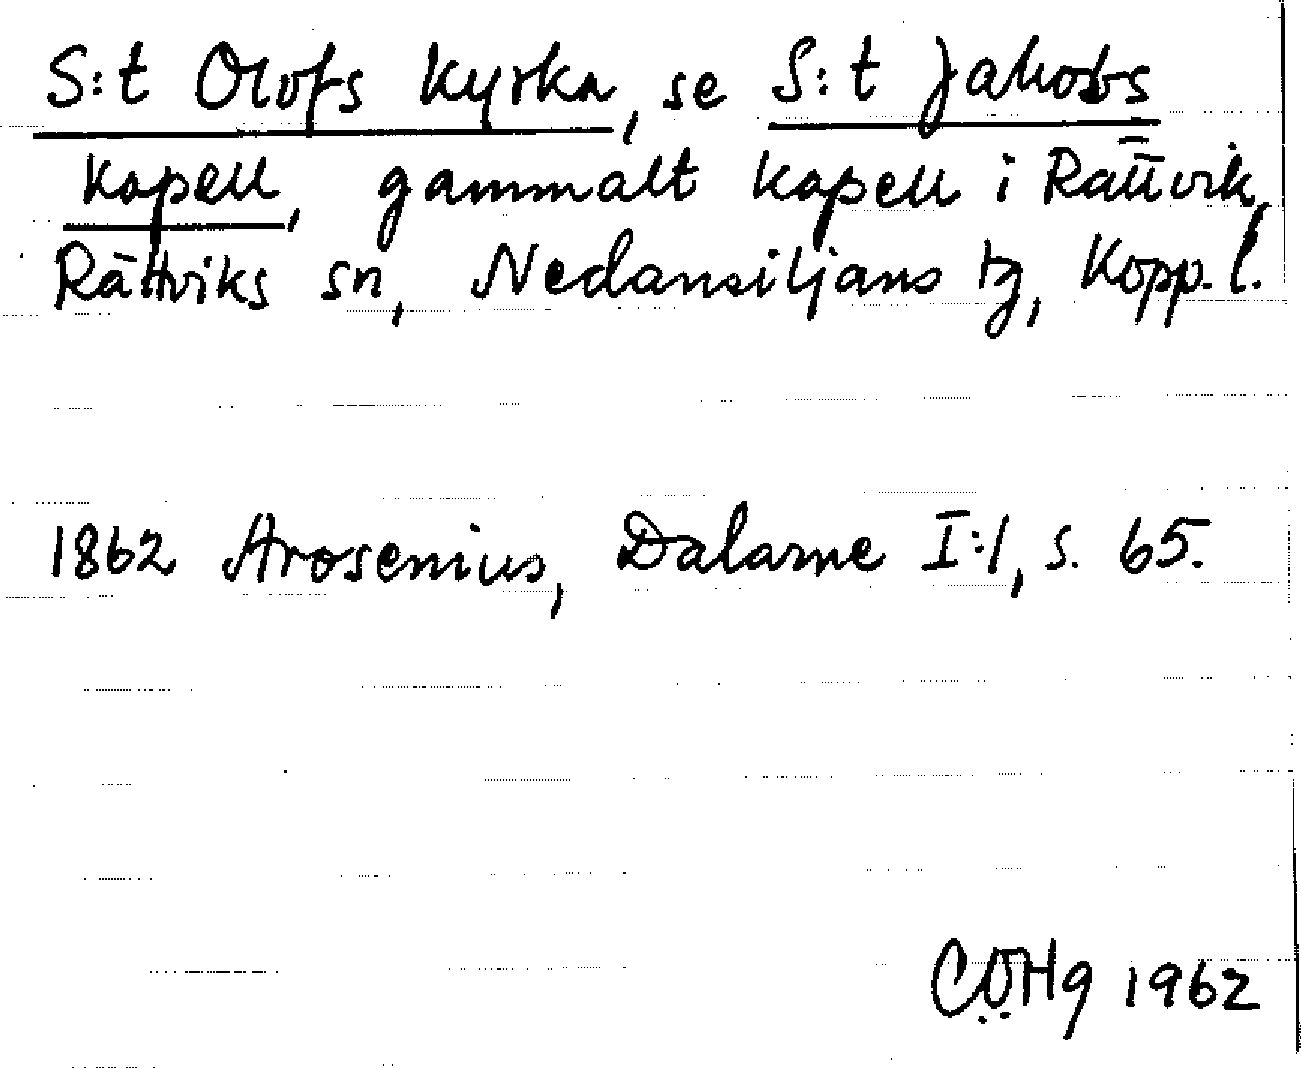 S:t Olofs kyrka, se S:t Jakobs
kapell, gammalt kapell i Rättvik,
Rättviks sn, Nedansiljans tg, Kopp. l.
1862 Arosenius, Dalarne I:1, s. 65.
CÖHg 1962